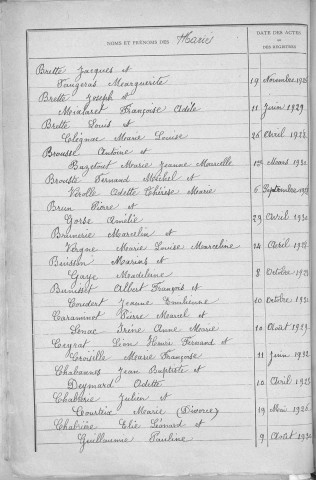 NOMS ET PRÉNOMS DES Mariés
DATE DES ACTES
ou
DES REGISTRES
Brette Jacques et
Faugeras Marguerite 19 Novembre 192
Brette Joseph et
Françoise Adèle 11 Juin 1929
Brette Louis et
Marie Louise 26 Avril 192
Brousse Antoine et
Marie Jeanne 12 Mars 193
Brouste Fernand Michel et
Verolle Odette Thérèse Marie 6 Septembre 192
Brun Pierre et
Gorse Amélie 23 Avril 1930
Marcelin et
Vergne Marie Louise Marceline 14 Avril 192
Buisson Marius et
Gaye Madeleine 8 Octobre 192
Albert François et
Coudert Jeanne 10 Octobre 193
Caraminot Pierre Marcel et
Irène Anne Marie 10 Août 192
Ceyrat Léon Henri Fernand et
Croiselle Marie Françoise 11 Juin 1932
Chabannes Jean Baptiste et
Deymard Odette 10 Avril 192
Chablerie Julien et
Courteix Marie (Divorce) 19 Mai 192
Chabrière Elie Léonard et
Guillaumie Pauline 9 Août 193